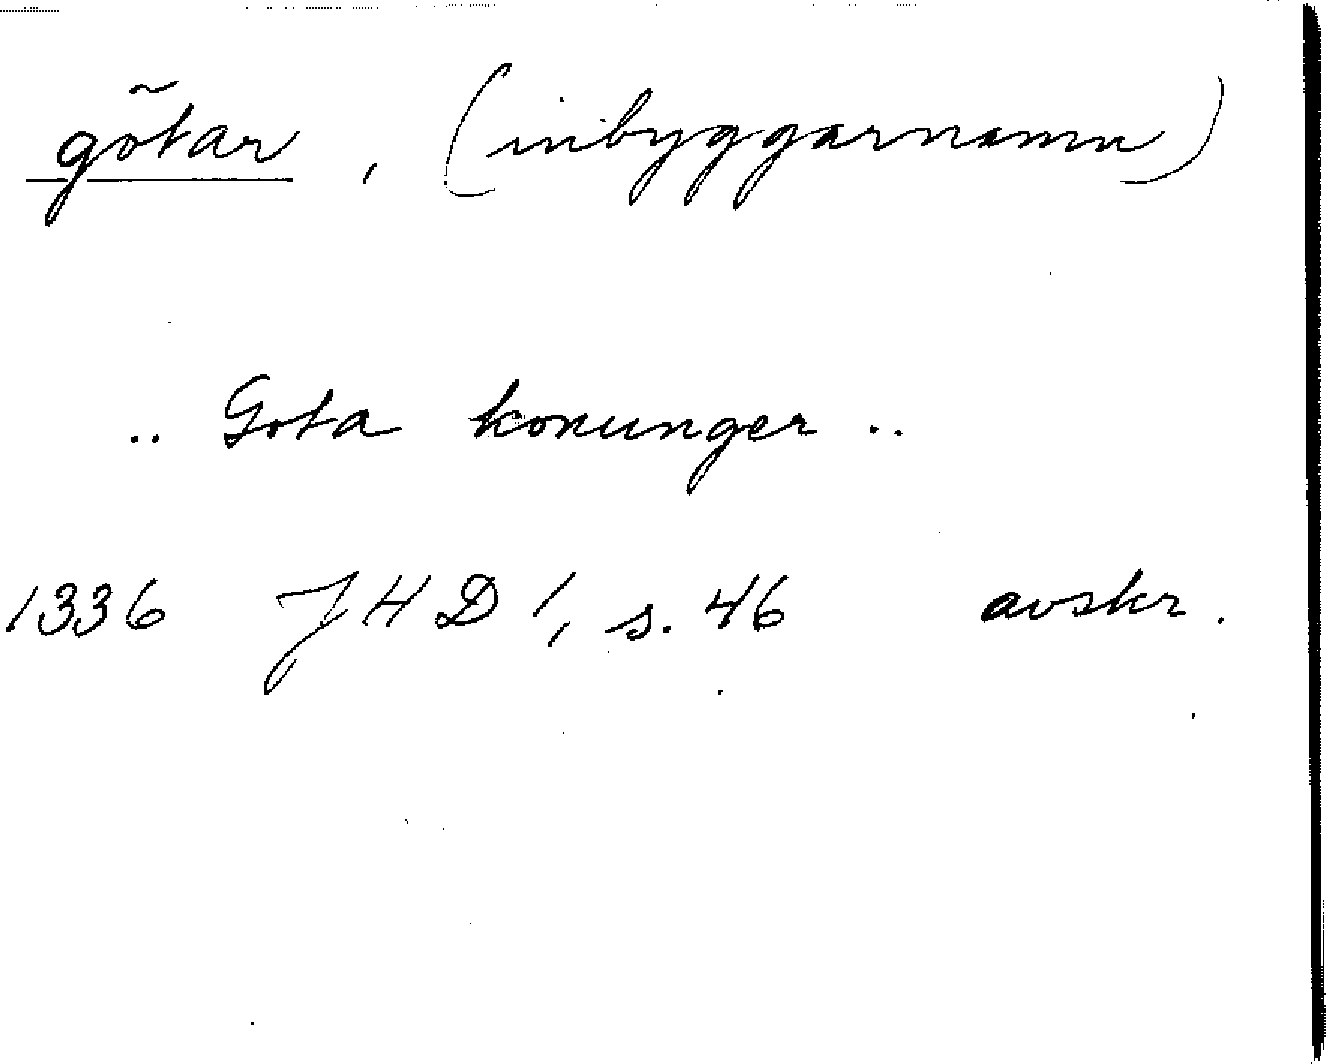 götar, (inbyggarnamn)
.. Gota konunger ..
1336 JHD 1, s. 46 avskr.